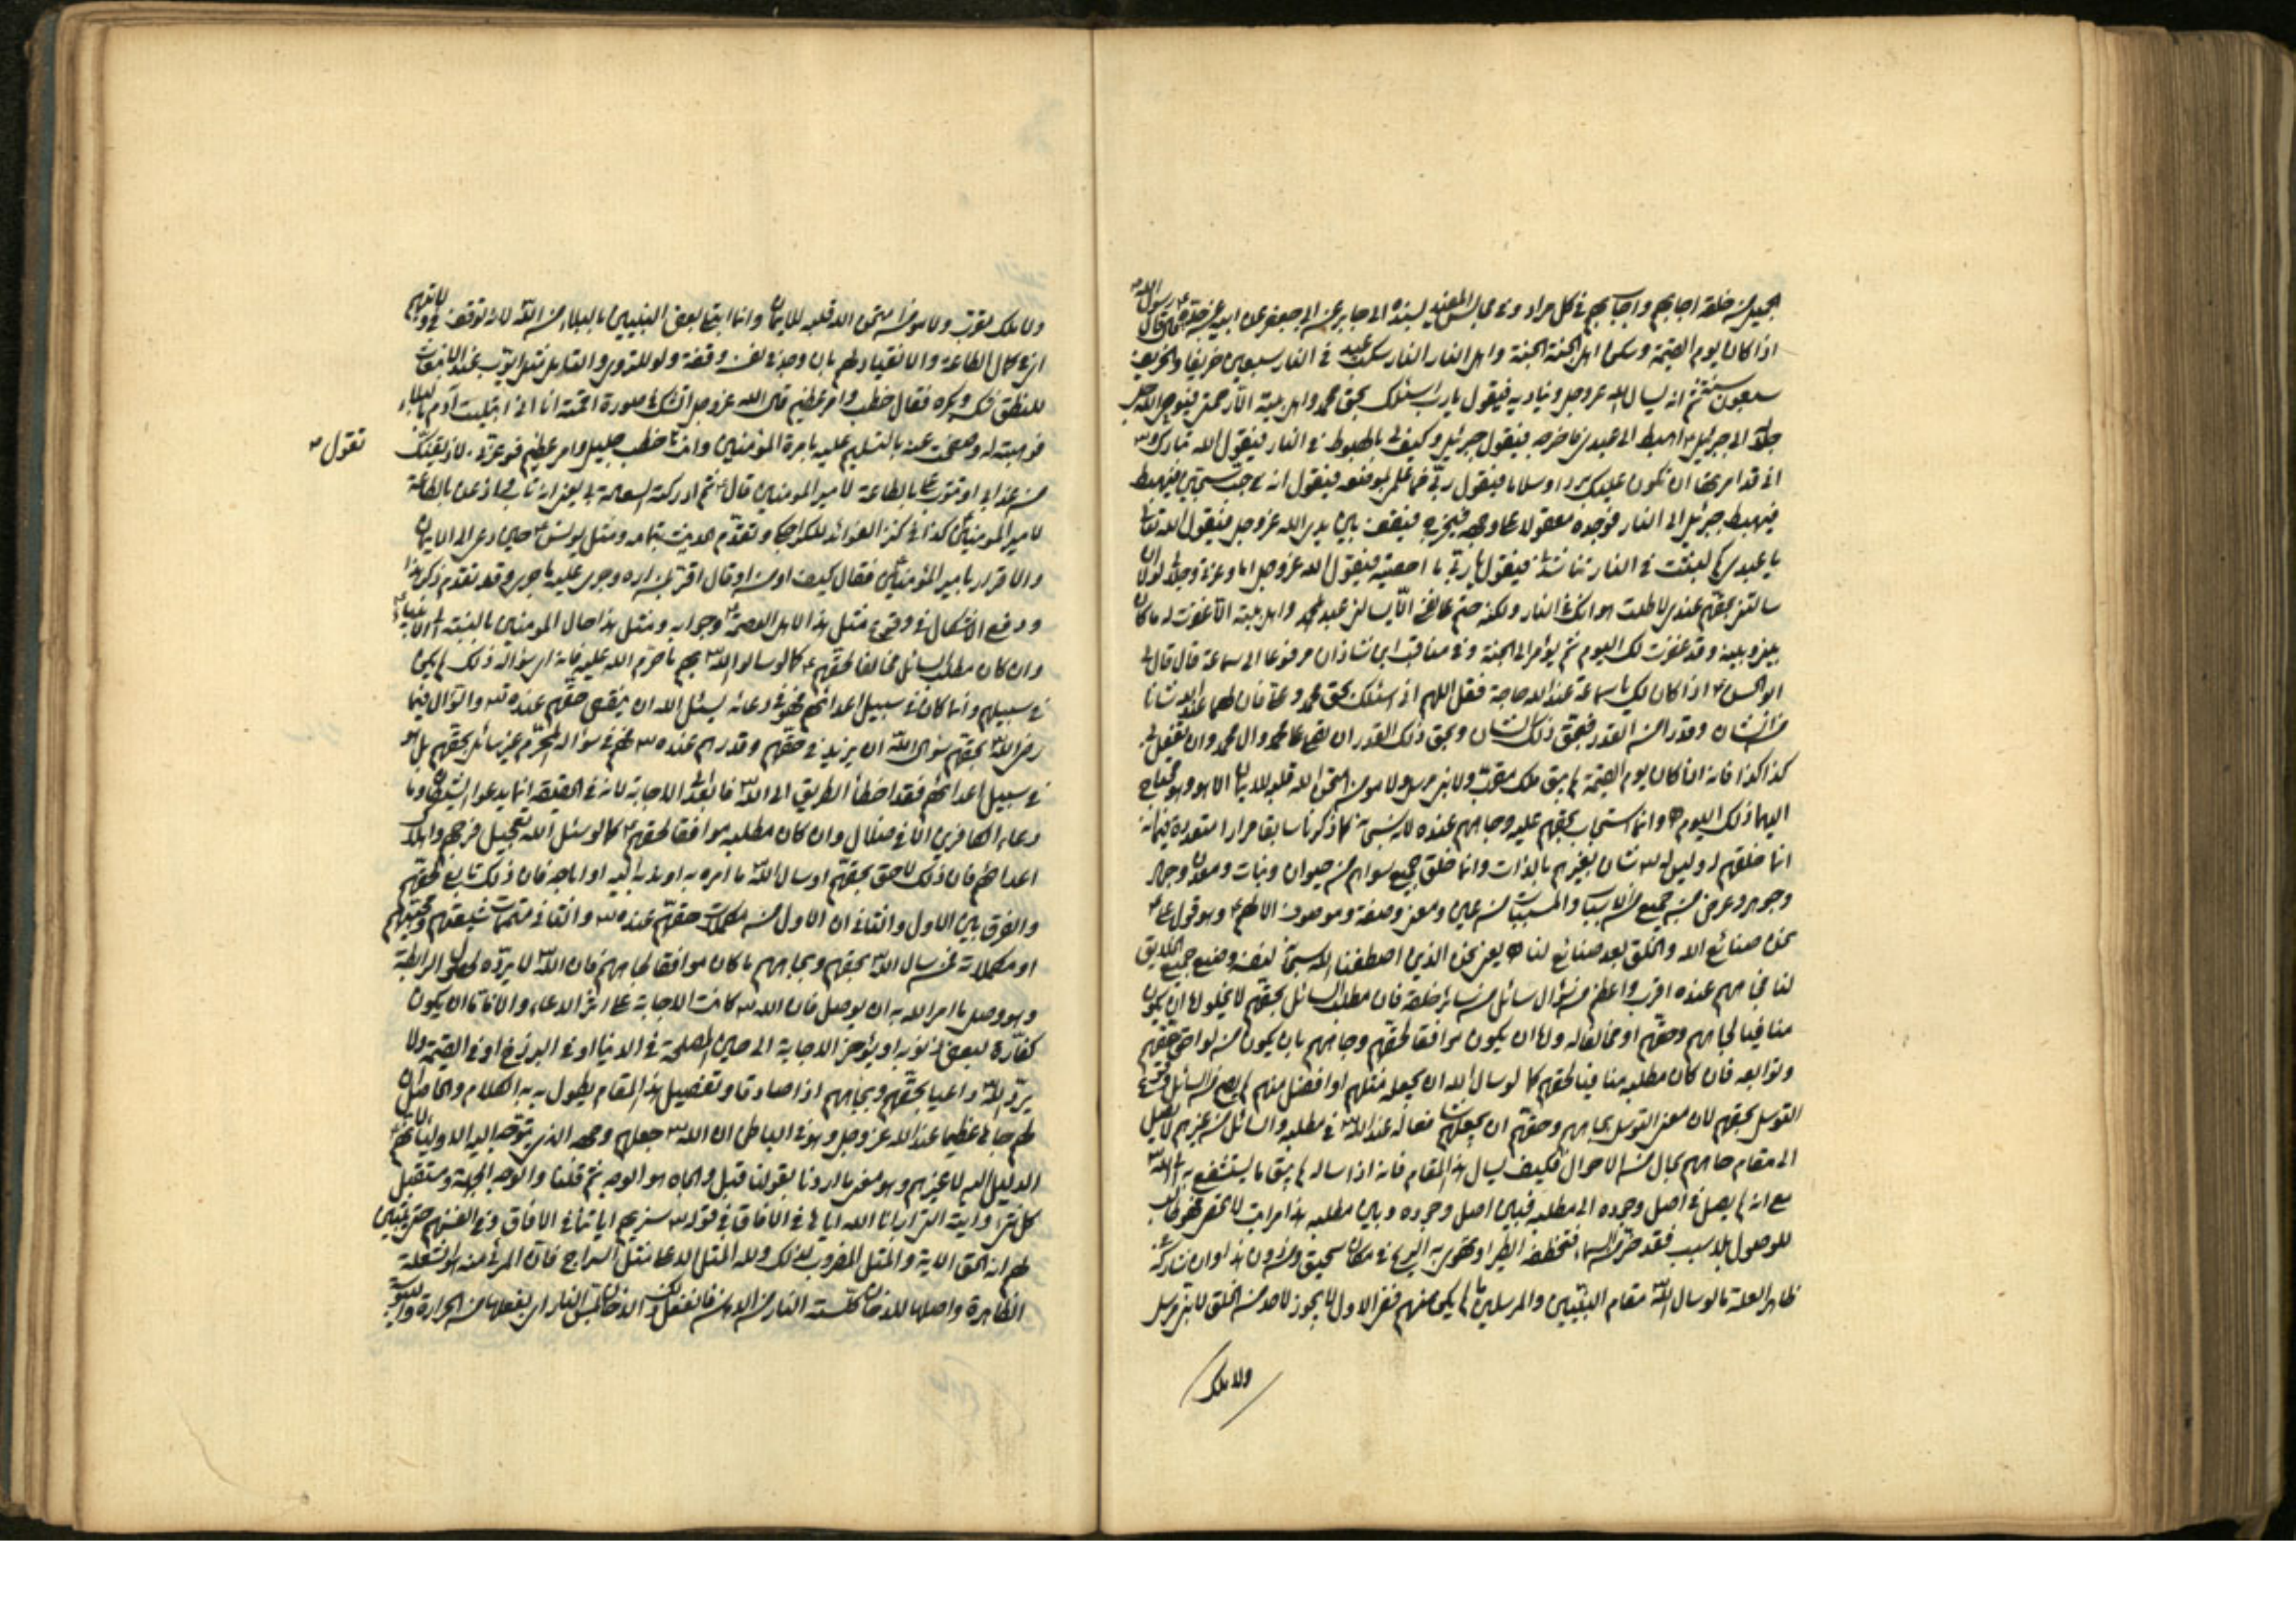 الجميل من خلقه اجابهم واجاب بهم في كل مراد وفي مجالس المفيد بسنده الى جابر عن ابي جعفر عن ابيه عن جده قال قال رسول الله ص
اذا كان يوم القيمة وسكن اهل الجنة الجنة واهل النار النار مكث عبد في النار سبعين خريفا والخريف
سبعون سنة ثم انه يسال الله عز وجل ويناديه فيقول يا رب اسئلك بحق محمد واهل بيته الا رحمتني فيوحي الله جل
جلاله الى جبرئيل اهبط الى عبدي فاخرجه فيقول جبرئيل وكيف لي بالهبوط في النار فيقول الله تبارك وتعالى
اني قد امرتها ان تكون عليك بردا وسلاما فيقول رب فما علمي بموضعه فيقول انه في جب من سجين فيهبط
فيهبط جبرئيل الى النار فيجده معقولا على وجهه فيخرجه فيقف بين يدي الله عز وجل فيقول الله تعالى
يا عبدي كم لبثت في النار تناشدني فيقول يا رب ما احصيه فيقول الله عز وجل اما وعزتي وجلالي لولا
سالتني بحقهم عندي لاطلت هوانك في النار ولكنه حتم على نفسي الا يسالني عبد بمحمد واهل بيته الا غفرت له ما كان
بيني وبينه وقد غفرت لك اليوم ثم يؤمر الى الجنة وفي مناقب ابن شاذان مرفوعا الى سماعة قال قال لي
ابو الحسن ع اذا كان لك يا سماعة عند الله حاجة فقل اللهم اني اسئلك بحق محمد وعلي فان لهما عندك شانا
من الشان وقدرا من القدر فبحق ذلك الشان وبحق ذلك القدر ان تصلي على محمد وال محمد وان تفعل بي
كذا كذا فانه اذا كان يوم القيمة لم يبق ملك مقرب ولا نبي مرسل ولا مومن امتحن الله قلبه للايمان الا وهو محتاج
اليهما ذلك اليوم وانما استجاب بحقهم عليه وجاههم عنده لانه سبحانه كما ذكرنا سابقا مرارا متعددة فيما
انما خلقهم له وليس له شان بغيرهم بالذات وانما خلق جميع سواهم من حيوان ونبات ومعدن وجماد
وجوهر وعرض من جميع الاسباب والمسببات من عين ومعنى وصفة وموصوف الا لهم وهو قول علي ع
نحن صنائع الله والخلق بعد صنائع لنا يعني نحن الذين اصطنعنا الله سبحانه لنفسه وصنع جميع الخلايق
لنا فجاههم عنده اقرب واعظم من سؤال سائل من سائر خلقه فان مطلب السائل بحقهم لا يخلو اما ان يكون
منافيا لجاههم وحقهم او مخالفا له واما ان يكون موافقا لحقهم وجاههم بان يكون من لواحق حقهم
وتوابعه فان كان مطلبه منافيا لحقهم كما لو سال الله ان يجعله مثلهم او افضل منهم لم يصح من السائل
التوسل بحقهم لان معنى التوسل بجاههم وحقهم ان يجعلهم شفعاء له عند الله في مطلبه والسائل من غيرهم لا يصل
الى مقام جاههم بحال من الاحوال فكيف يسال هذا المقام فانه اذا ساله لم يبق ما يستشفع به الى الله
مع انه لم يصل في اصل وجوده الى مطلبه فبين اصل وجوده وبين مطلبه هذا مراتب لا تحصى فهو طالب
للوصول بلا سبب فقد خر من السماء فتخطفه الطير او تهوي به الريح في مكان سحيق
ظاهر العلة ما لو سال الله مقام النبيين والمرسلين ما لم يكن منهم ففي الاول لا يجوز لاحد من الخلق لا نبي مرسل
ولا ملك
ولا ملك مقرب ولا مومن امتحن الله قلبه للايمان وانما ابتلي بعض النبيين بالبلاء من الله لانه توقف في ولايتهم
اي في كمال الطاعة والانقياد لهم بان وجد في نفسه وقفة ولو للتروي والتامل مثل ايوب عند الانبعاث
للنطق شك وبكى فقال خطب وامر عظيم قال الله عز وجل اتشك في صورة اقمته انا اني ابتليت آدم بالبلاء
فوهبته له وصفحت عنه بالتسليم عليه بامرة المؤمنين وانت تقول خطب جليل وامر عظيم فوعزتي لاذيقنك
من عذابي او تتوب الي بالطاعة لامير المومنين قال ثم ادركته السعادة بي يعني انه تاب واذعن بالطاعة
لامير المومنين كذا في كنز الفوائد للكراجكي وتقدم الحديث بتمامه ومثل يونس ع حين دعي الى الايمان
والاقرار بامير المؤمنين فقال كيف اومن او قال اقر بمن لم اره وجرى عليه ما جرى وقد تقدم ذكر هذا
ودفع الاشكال في وقوع مثل هذا لاهل العصمة وجوابه ومثل هذا حال المومنين بالنسبة الى الانبياء ع
وان كان مطلب السائل مخالفا لحقهم كما لو سال الله بهم ما حرم الله عليه فانه اي سؤاله ذلك لم يكن
في سبيلهم وانما كان في سبيل اعدائهم فهو في دعائه يسئل الله ان ينقص حقهم عنده والسؤال فيما
رضي الله بحقهم سؤال الله ان يزيد في حقهم وقدرهم عنده فهم في سؤاله المحرم غير سائل بحقهم بل هو
في سبيل اعدائهم فقد اخطأ الطريق الى الله فاتته الاجابة لانه في الحقيقة انما يدعوا الشيطان وما
دعاء الكافرين الا في ضلال وان كان مطلبه موافقا لحقهم كما لو سئل الله تعجيل فرجهم واهلاك
اعدائهم فان ذلك لاحق بحقهم او سال الله ما امره به او ندبه اليه او اباحه فان ذلك تابع لحقهم
والفرق بين الاول والثاني ان الاول من مكملات حقهم عنده والثاني متممات شيعتهم ومحبيهم
او مكملاته فمن سال الله بحقهم وبجاههم ما كان موافقا لجاههم فان الله لا يرده لحصول الرابطة
وهو وصل ما امر الله به ان يوصل فان الله كانت الاجابة على اثر الدعاء والا فاما ان يكون
كفارة لبعض ذنوبه او يؤخر الاجابة الى حين المصلحة في الدنيا او في البرزخ او في القيمة ولا
يرد الله داعيا بحقهم وبجاههم اذا صادقا وتفصيل هذا المقام يطول به الكلام والحاصل ان
لهم جاها عظيما عند الله عز وجل وهو في الباطن ان الله جعلهم وجهه الذي يتوجه اليه الاولياء
الدليل اليه لا غيرهم وهو معنى ما اردنا بقولنا قبل والجاه هو الوجه ثم قلنا والوجه الجهة ومستقبل
كل شيء وايته التي ارانا الله اياها في الافاق في قوله سنريهم اياتنا في الافاق وفي انفسهم حتى يتبين
لهم انه الحق الاية والمثل المضروب لذلك ولله المثل الاعلى مثل السراج فان المرئي منه هو الشعلة
الظاهرة واصلها للدخان كلسته النار من الدهن فانفعل ذلك الدخان بمس النار اي بفعلها من الحرارة واليبوسة
تقول